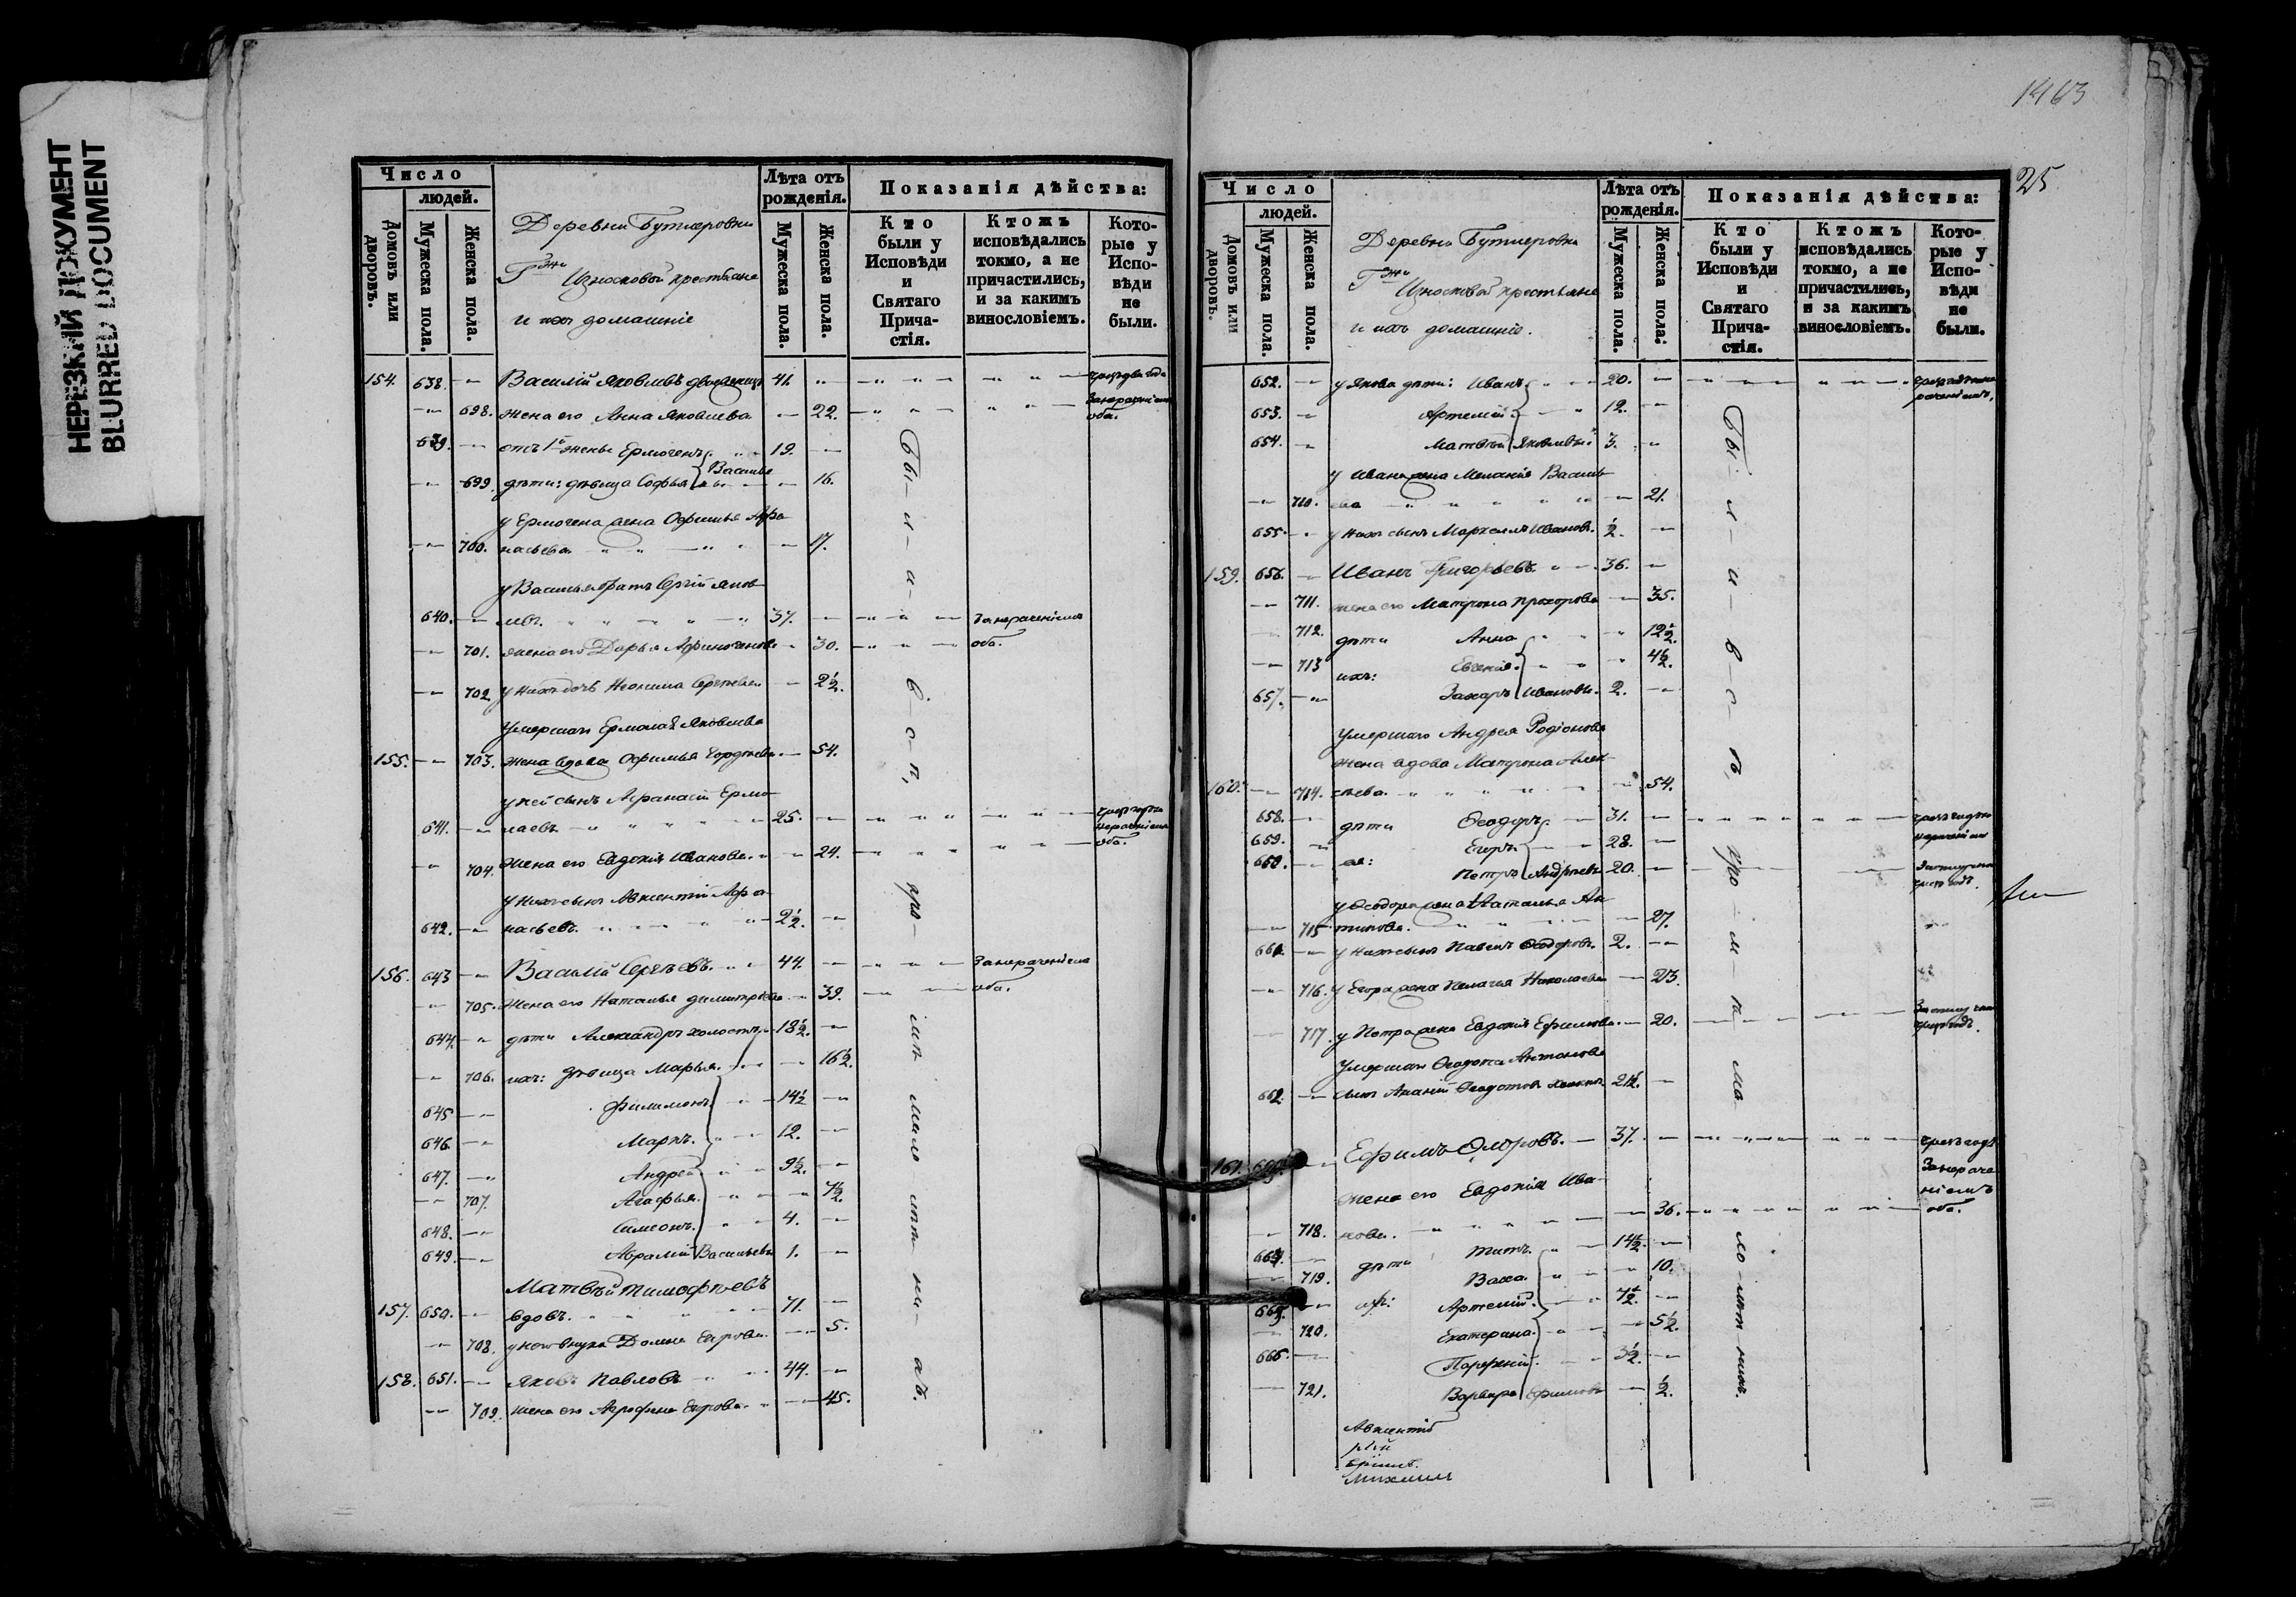 НЕРЕЗКИЙ ДОКУМЕНТ
BLURRED DOCUMENT
Число
людей.
Домовъ или дворовъ.
Мужеска пола.
Женска пола.
Деревни Бутмеровки
Гжи Износковой крестьяне
и ихъ домашніе
Лѣта отъ рожденія.
Мужеска пола.
Женска пола.
Показанія дѣйства:
Кто были у Исповѣди и Святаго Прича-стія.
Ктожъ исповѣдались токмо, а не причастились, и за какимъ винословіемъ.
Кото-рые у Испо-вѣди не были.
154. 638. Василій Яковлевъ 41.
698. жена его Анна Яковлева 22.
639. отъ 1й жены Ермогенъ 19.
699. дѣти: дѣвица Софья Василье 16.
у Ермогена жена Офимья Афа-
700. насьева 17.
у Василья братъ Сергій Яков-
640. левъ. 37. за нераченіемъ
701. жена его Дарья 30. оба.
702. у нихъ дочь Неонила Сергѣева 2½.
умершаго Ермолая Яковлева
155. 703. жена вдова Офимья Гордѣева 54.
у ней сынъ Афанасій Ермо-
641. лаевъ 25.
704. жена его Евдокія Иванова. 24. оба.
у нихъ сынъ Авксентій Афа-
642. насьевъ. 2½.
156. 643 Василій Сергѣевъ. 44. за нераченіемъ
705. жена его Наталья Димитріева 39. оба.
644. дѣти Александръ холостъ, 18½.
706. ихъ: дѣвица Марья. 16½.
645 Филимонъ. 14½
646. Маркъ. 12.
647. Андрей 9½.
707. Агафья. 7½.
648. Симеонъ. 4.
649. Аврамій Васильевы 1.
Матвѣй Тимофѣевъ
157. 650. вдовъ. 71.
708. у него внука Домна Егрова. 5.
158. 651. Яковъ Павловъ 44.
709. жена его Агрофена Егрова. 45.
Бы-л-и-в-с-п,
1463
25
Число
людей.
Домовъ или дворовъ.
Мужеска пола.
Женска пола.
Деревни Бутмеровки
Гжи Износковой крестьяне
и ихъ домашніе.
Лѣта отъ рожденія.
Мужеска пола.
Женска пола.
Показанія дѣйства:
Кто были у Исповѣди и Святаго Прича-стія.
Ктожъ исповѣдались токмо, а не причастились, и за какимъ винословіемъ.
Кото-рые у Испо-вѣди не были.
652. у Якова дѣти: Иванъ 20.
653. Артемій 12.
654. Матвѣй Яковлевы 3.
у Ивана жена Меланія Василь-
710. ева 21.
655. у нихъ сынъ Маркеллъ Иванов. ½.
159. 656. Иванъ Григорьевъ 36.
711. жена его Матрона Прохорова 35.
712. дѣти Анна 12½.
713 ихъ: Евгенія. 4½.
657. Захаръ Ивановы. 2.
умершаго Андрея Родіонова
жена вдова Матрона Алек-
160. 714. сѣева. 54.
658. дѣти Ѳеодоръ 31.
659. ея: Егоръ 28.
Петръ Андреевы 20.
у Ѳеодора жена Наталья Ан-
715 типова. 27.
у нихъ сынъ Павелъ Ѳеодоровъ. 2.
716. у Егора жена Пелагея Николаева 23.
717. у Петра жена Евдокія Ефимова. 20.
умершаго Ѳеодота Антонова
662. сынъ Ананій Ѳеодотовъ холостъ 21½.
161. Ефимъ 37. чрезъ годъ
за нераче-
ніемъ
жена его Евдокія Ива-
718. нова. 36. оба.
664. дѣти Титъ. 14½.
719. Васса. 10.
665. ихъ: Артемій. 7½.
720. Екатерина. 5½.
666. Парфеній. 3½.
721. Варвара Ефимовы ½.
Бы-л-и-в-с-ѣ,
Авксентій
Михаилъ